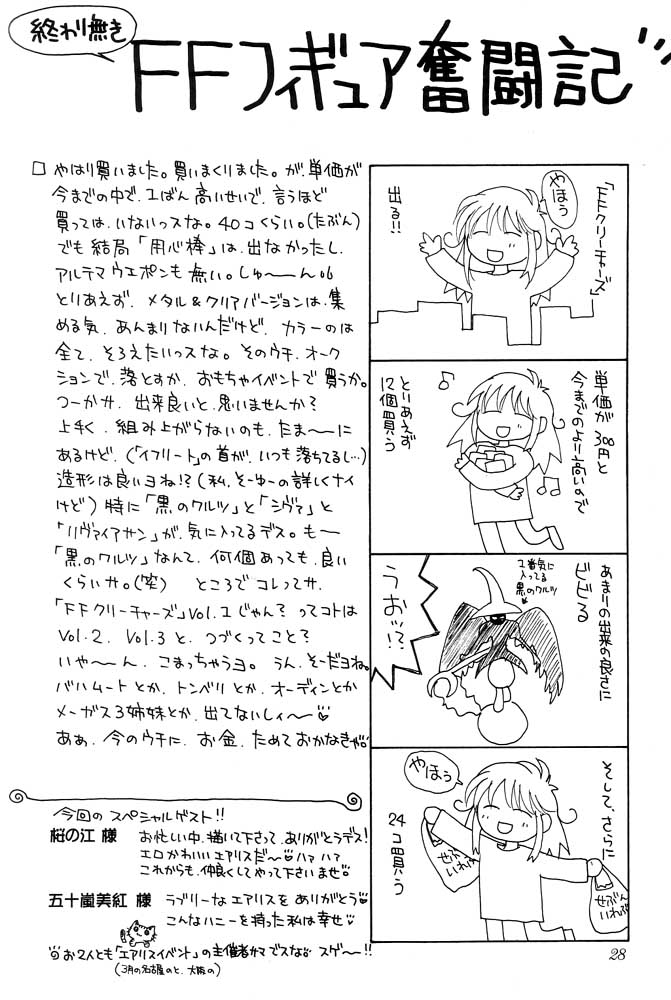 終わり無き
FFフィギュア奮闘記
□ やはり買いました。買いまくりました。が、単価が
今までの中で、1ばん高いせいで、言うほど
買っては、いないっスな。40コくらい。(たぶん)
でも結局「用心棒」は、出なかったし、
アルテマウエポンも無い。しゅ〜〜ん。
とりあえず、メタル&クリアバージョンは、集
める気、あんまりないんだけど、カラーのは
全て、そろえたいっスな。そのウチ、オーク
ションで、落とすか、おもちゃイベントで買うか。
つーかサ、出来良いと、思いませんか?
上手く、組み上がらないのも、たま〜に
あるけど、(「イフリート」の首が、いつも落ちてるし…)
造形は良いヨね!?(私、そーゆーの詳しくナイ
けど)特に「黒のワルツ」と「シヴァ」と
「リヴァイアサン」が、気に入ってるデス。も〜
「黒のワルツ」なんて、何個あっても、良い
くらいサ。(笑) ところでコレってサ、
「FFクリーチャーズ」Vol.1じゃん? ってコトは
Vol.2、Vol.3と、つづくってこと?
いや〜〜ん、こまっちゃうヨ。うん、そーだヨね。
バハムートとか、トンベリとか、オーディンとか
メーガス3姉妹とか、出てないしィ〜
ああ、今のウチに、お金、ためておかなきゃ
「FFクリーチャーズ」
出る!!
やほぅ
単価が300円と
今までのより高いので
とりあえず
12個買う
あまりの出来の良さに
ビビる
1番気に
入ってる
黒のワルツ
うおッ!?
そして、さらに
24コ買う
やほぅ
ぜんぶ
いれば
ぜんぶん
いれば
今回のスペシャルゲスト!!
桜の江 様 お忙しい中、描いて下さって、ありがとうデス!
エロかわいいエアリスだ〜 ハァハァ
これからも、仲良くしてやって下さいませ
五十嵐美紅 様 ラブリーなエアリスをありがとう
こんなハニーを持った私は幸せ
お2人とも「エアリスイベント」の主催者サマでスな スゲ〜!!
(3月の名古屋のと、大阪の)
28